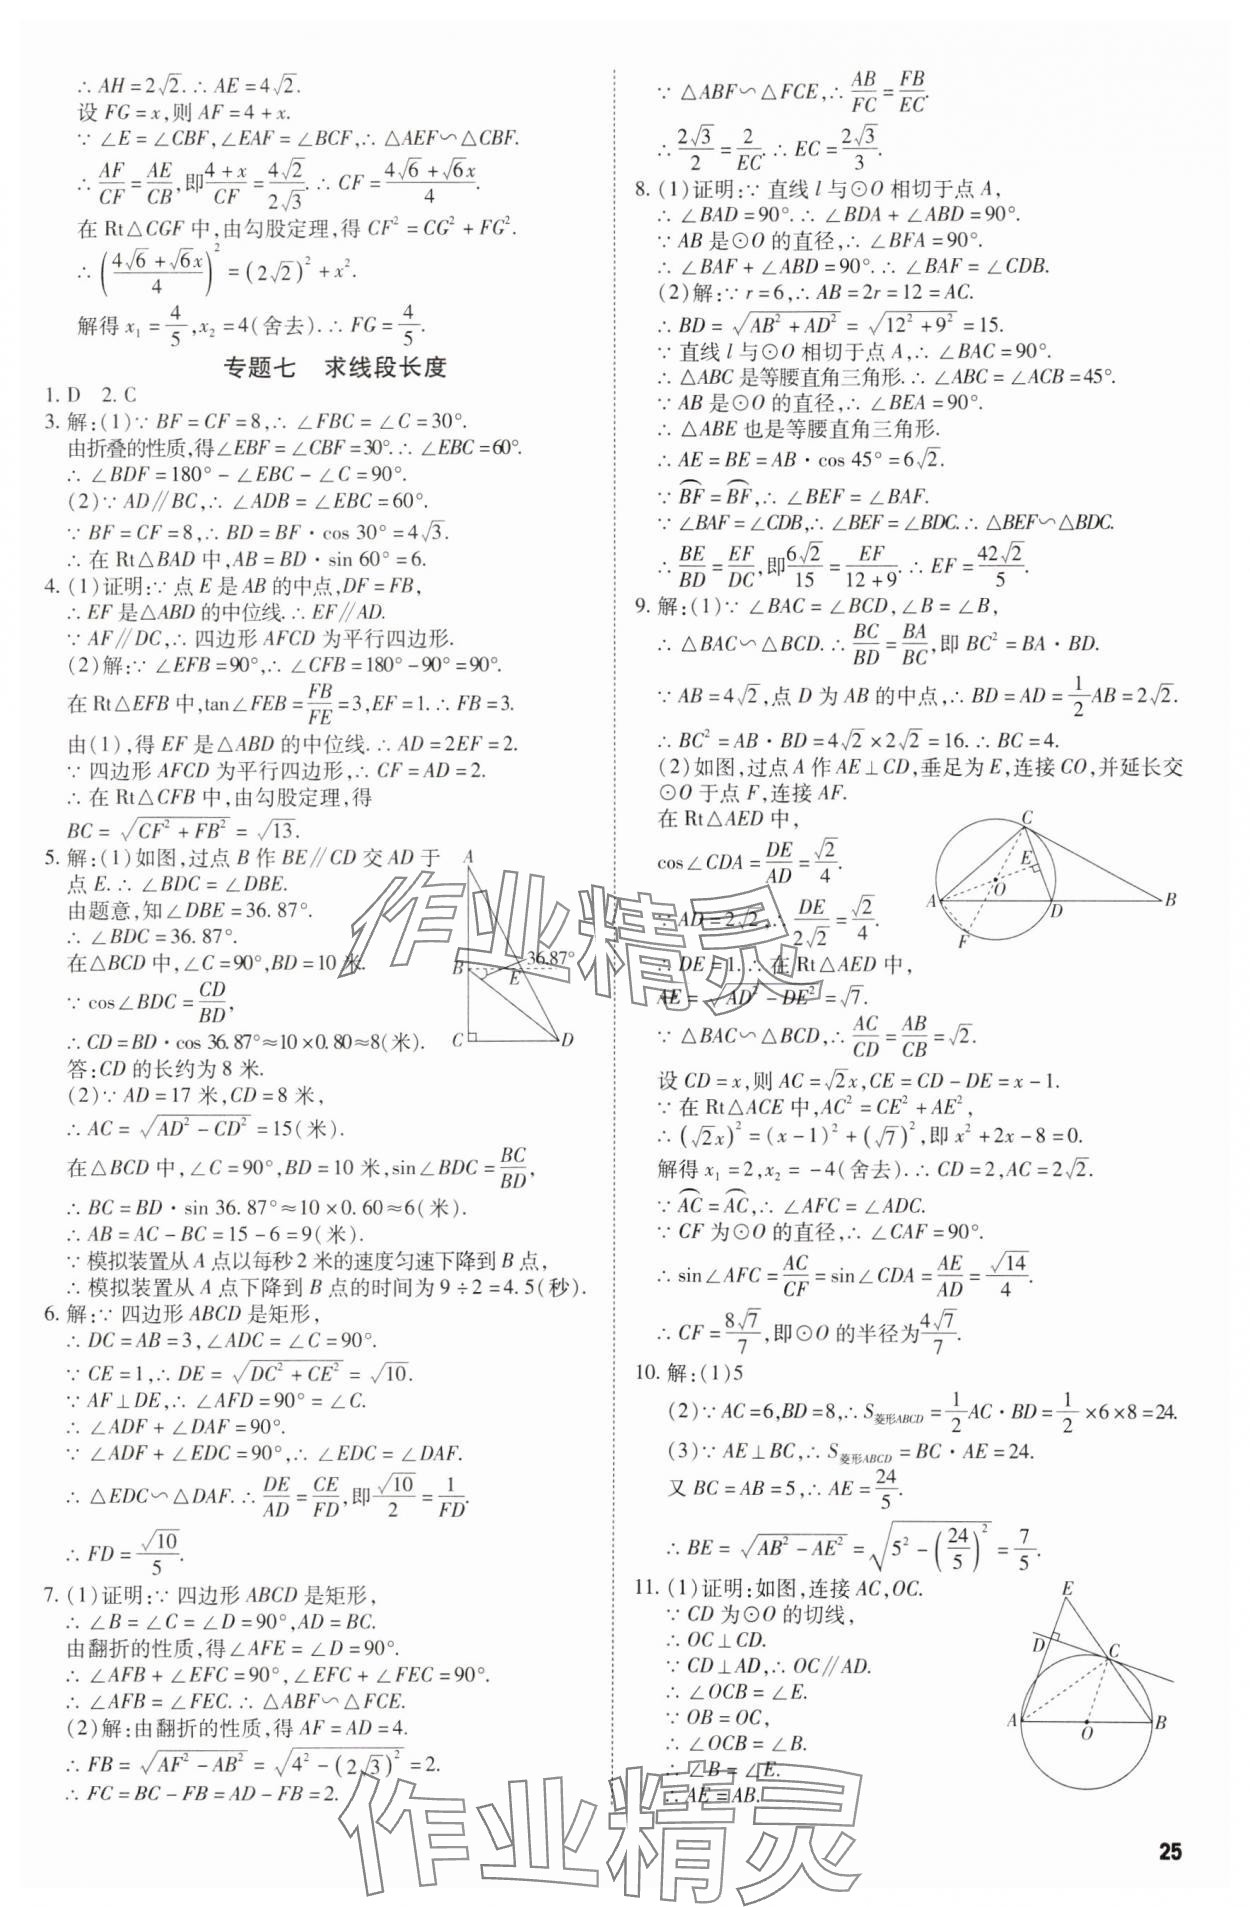 ∴ AH=2√2.∴ AE=4√2.
设 FG=x,则 AF=4+x.
∵ ∠E=∠CBF,∠EAF=∠BCF,∴ △AEF∽△CBF.
∴ AF/CF=AE/CB,即(4+x)/CF=4√2/2√3.∴ CF=(4√6+√6x)/4.
在 Rt△CGF 中,由勾股定理,得 CF²=CG²+FG².
∴ ((4√6+√6x)/4)²=(2√2)²+x².
解得 x₁=4/5,x₂=4(舍去).∴ FG=4/5.
专题七 求线段长度
1. D 2. C
3. 解:(1)∵ BF=CF=8,∴ ∠FBC=∠C=30°.
由折叠的性质,得∠EBF=∠CBF=30°.∴ ∠EBC=60°.
∴ ∠BDF=180°-∠EBC-∠C=90°.
(2)∵ AD∥BC,∴ ∠ADB=∠EBC=60°.
∵ BF=CF=8,∴ BD=BF·cos 30°=4√3.
∴ 在 Rt△BAD 中,AB=BD·sin 60°=6.
4. (1)证明:∵ 点 E 是 AB 的中点,DF=FB,
∴ EF 是△ABD 的中位线.∴ EF∥AD.
∵ AF∥DC,∴ 四边形 AFCD 为平行四边形.
(2)解:∵ ∠EFB=90°,∴ ∠CFB=180°-90°=90°.
在 Rt△EFB 中,tan∠FEB=FB/FE=3,EF=1.∴ FB=3.
由(1),得 EF 是△ABD 的中位线.∴ AD=2EF=2.
∵ 四边形 AFCD 为平行四边形,∴ CF=AD=2.
∴ 在 Rt△CFB 中,由勾股定理,得
BC=√(CF²+FB²)=√13.
5. 解:(1)如图,过点 B 作 BE∥CD 交 AD 于
点 E.∴ ∠BDC=∠DBE.
由题意,知∠DBE=36.87°.
∴ ∠BDC=36.87°.
在△BCD 中,∠C=90°,BD=10 米.
∵ cos∠BDC=CD/BD,
∴ CD=BD·cos 36.87°≈10×0.80≈8(米).
答:CD 的长约为 8 米.
A
B
E
36.87°
C
D
(2)∵ AD=17 米,CD=8 米,
∴ AC=√(AD²-CD²)=15(米).
在△BCD 中,∠C=90°,BD=10 米,sin∠BDC=BC/BD,
∴ BC=BD·sin 36.87°≈10×0.60≈6(米).
∴ AB=AC-BC=15-6=9(米).
∵ 模拟装置从 A 点以每秒 2 米的速度匀速下降到 B 点,
∴ 模拟装置从 A 点下降到 B 点的时间为 9÷2=4.5(秒).
6. 解:∵ 四边形 ABCD 是矩形,
∴ DC=AB=3,∠ADC=∠C=90°.
∵ CE=1,∴ DE=√(DC²+CE²)=√10.
∵ AF⊥DE,∴ ∠AFD=90°=∠C.
∴ ∠ADF+∠DAF=90°.
∵ ∠ADF+∠EDC=90°,∴ ∠EDC=∠DAF.
∴ △EDC∽△DAF.∴ DE/AD=CE/FD,即√10/2=1/FD.
∴ FD=√10/5.
7. (1)证明:∵ 四边形 ABCD 是矩形,
∴ ∠B=∠C=∠D=90°,AD=BC.
由翻折的性质,得∠AFE=∠D=90°.
∴ ∠AFB+∠EFC=90°,∠EFC+∠FEC=90°.
∴ ∠AFB=∠FEC.∴ △ABF∽△FCE.
(2)解:由翻折的性质,得 AF=AD=4.
∴ FB=√(AF²-AB²)=√(4²-(2√3)²)=2.
∴ FC=BC-FB=AD-FB=2.
∵ △ABF∽△FCE,∴ AB/FC=FB/EC.
∴ 2√3/2=2/EC.∴ EC=2√3/3.
8. (1)证明:∵ 直线 l 与⊙O 相切于点 A,
∴ ∠BAD=90°.∴ ∠BDA+∠ABD=90°.
∵ AB 是⊙O 的直径,∴ ∠BFA=90°.
∴ ∠BAF+∠ABD=90°.∴ ∠BAF=∠CDB.
(2)解:∵ r=6,∴ AB=2r=12=AC.
∴ BD=√(AB²+AD²)=√(12²+9²)=15.
∵ 直线 l 与⊙O 相切于点 A,∴ ∠BAC=90°.
∴ △ABC 是等腰直角三角形.∴ ∠ABC=∠ACB=45°.
∵ AB 是⊙O 的直径,∴ ∠BEA=90°.
∴ △ABE 也是等腰直角三角形.
∴ AE=BE=AB·cos 45°=6√2.
∵ BF⌒=BF⌒,∴ ∠BEF=∠BAF.
∵ ∠BAF=∠CDB,∴ ∠BEF=∠BDC.∴ △BEF∽△BDC.
∴ BE/BD=EF/DC,即6√2/15=EF/(12+9).∴ EF=42√2/5.
9. 解:(1)∵ ∠BAC=∠BCD,∠B=∠B,
∴ △BAC∽△BCD.∴ BC/BD=BA/BC,即 BC²=BA·BD.
∵ AB=4√2,点 D 为 AB 的中点,∴ BD=AD=1/2AB=2√2.
∴ BC²=AB·BD=4√2×2√2=16.∴ BC=4.
(2)如图,过点 A 作 AE⊥CD,垂足为 E,连接 CO,并延长交
⊙O 于点 F,连接 AF.
在 Rt△AED 中,
cos∠CDA=DE/AD=√2/4.
∵ AD=2√2,∴ DE/2√2=√2/4.
∴ DE=1.∴ 在 Rt△AED 中,
AE=√(AD²-DE²)=√7.
C
E
O
A
D
B
F
∵ △BAC∽△BCD,∴ AC/CD=AB/CB=√2.
设 CD=x,则 AC=√2x,CE=CD-DE=x-1.
∵ 在 Rt△ACE 中,AC²=CE²+AE²,
∴ (√2x)²=(x-1)²+(√7)²,即 x²+2x-8=0.
解得 x₁=2,x₂=-4(舍去).∴ CD=2,AC=2√2.
∵ AC⌒=AC⌒,∴ ∠AFC=∠ADC.
∵ CF 为⊙O 的直径,∴ ∠CAF=90°.
∴ sin∠AFC=AC/CF=sin∠CDA=AE/AD=√14/4.
∴ CF=8√7/7,即⊙O 的半径为4√7/7.
10. 解:(1)5
(2)∵ AC=6,BD=8,∴ S菱形ABCD=1/2AC·BD=1/2×6×8=24.
(3)∵ AE⊥BC,∴ S菱形ABCD=BC·AE=24.
又 BC=AB=5,∴ AE=24/5.
∴ BE=√(AB²-AE²)=√(5²-(24/5)²)=7/5.
11. (1)证明:如图,连接 AC,OC.
∵ CD 为⊙O 的切线,
∴ OC⊥CD.
∵ CD⊥AD,∴ OC∥AD.
∴ ∠OCB=∠E.
∵ OB=OC,
∴ ∠OCB=∠B.
∴ ∠B=∠E.
∴ AE=AB.
E
D
C
A
O
B
作业精灵
作业精灵
25